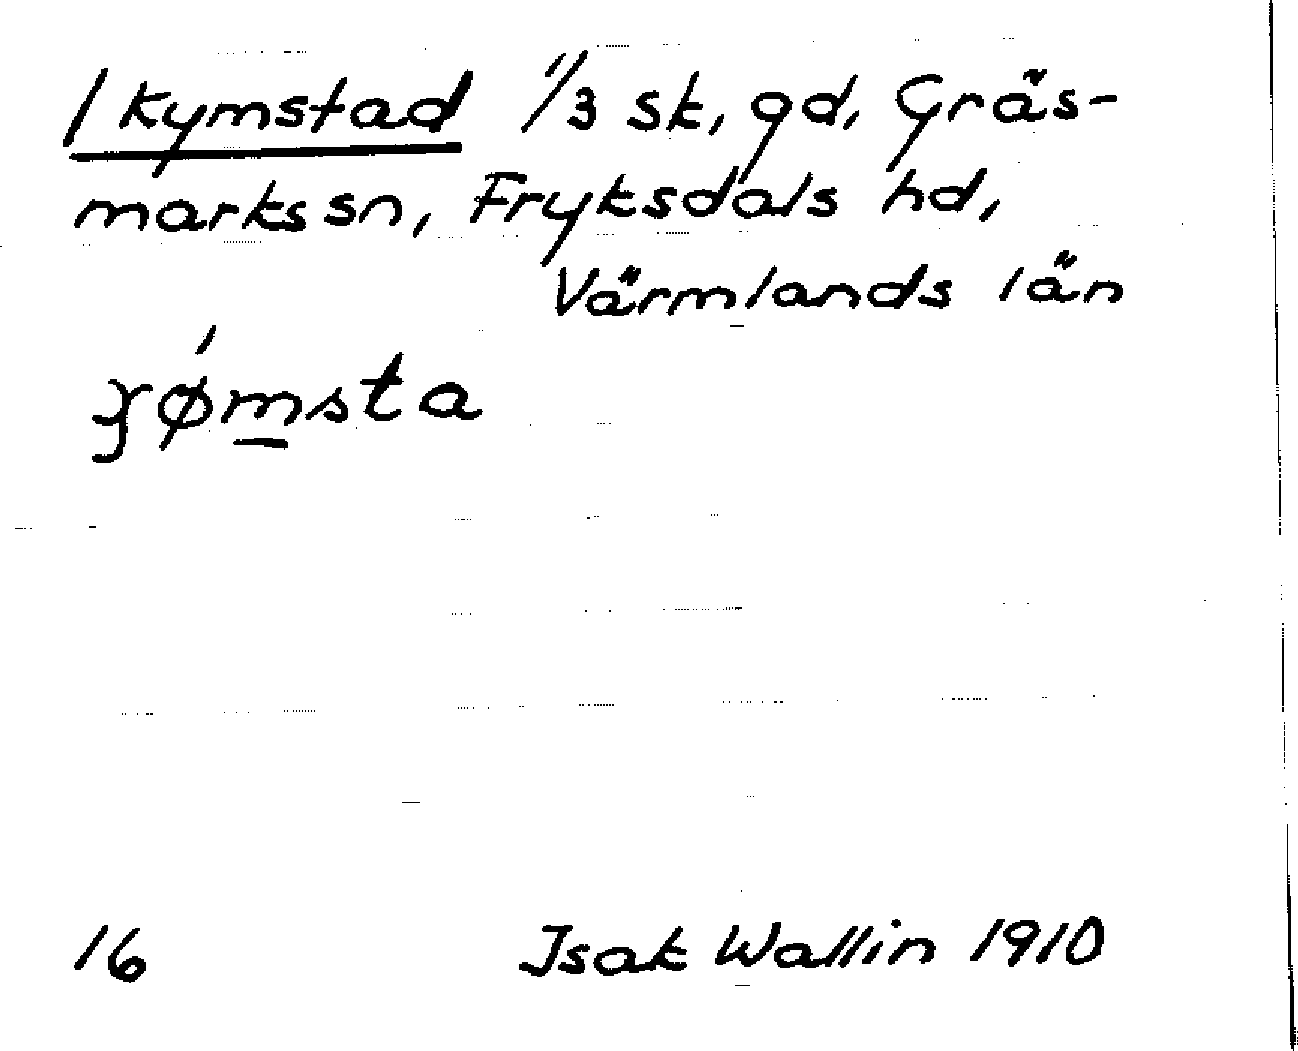 / Kymstad 1/3 sk, gd, Gräs-
marks sn, Fryksdals hd,
Värmlands län
ømsta
16 Isak Wallin 1910